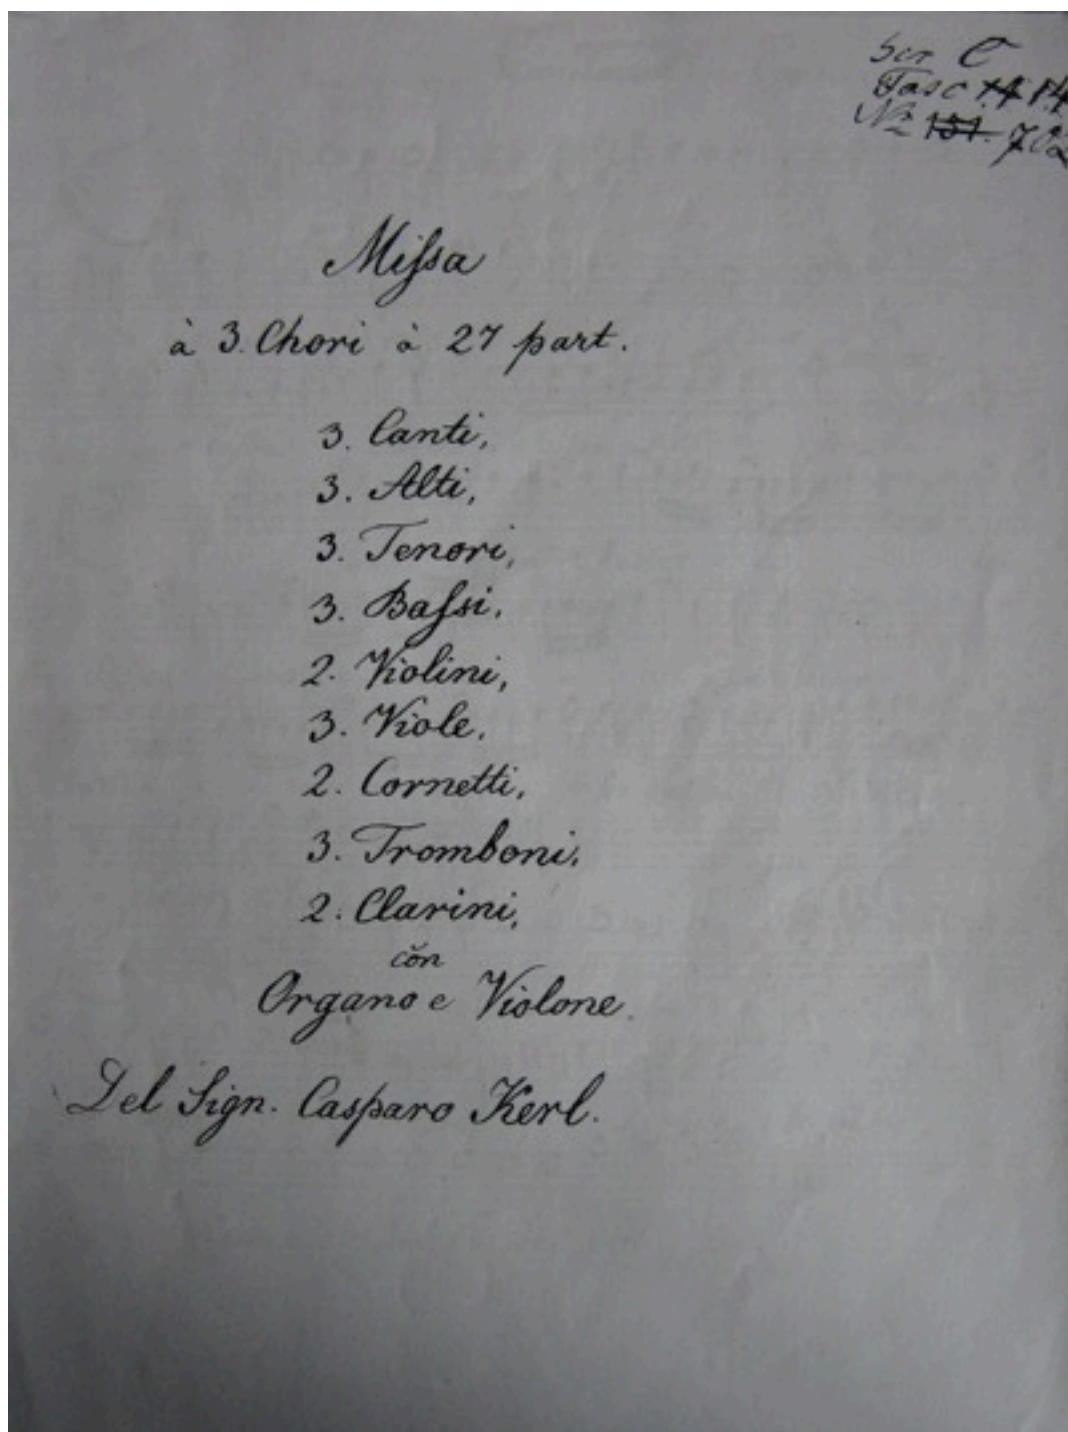 Ser C
Fasc 14 14
No 151. 702
Missa
à 3. Chori à 27 part.
3. Canti,
3. Alti,
3. Tenori,
3. Bassi.
2. Violini,
3. Viole.
2. Cornetti,
3. Tromboni.
2. Clarini,
con
Organo e Violone.
Del Sign. Casparo Kerl.